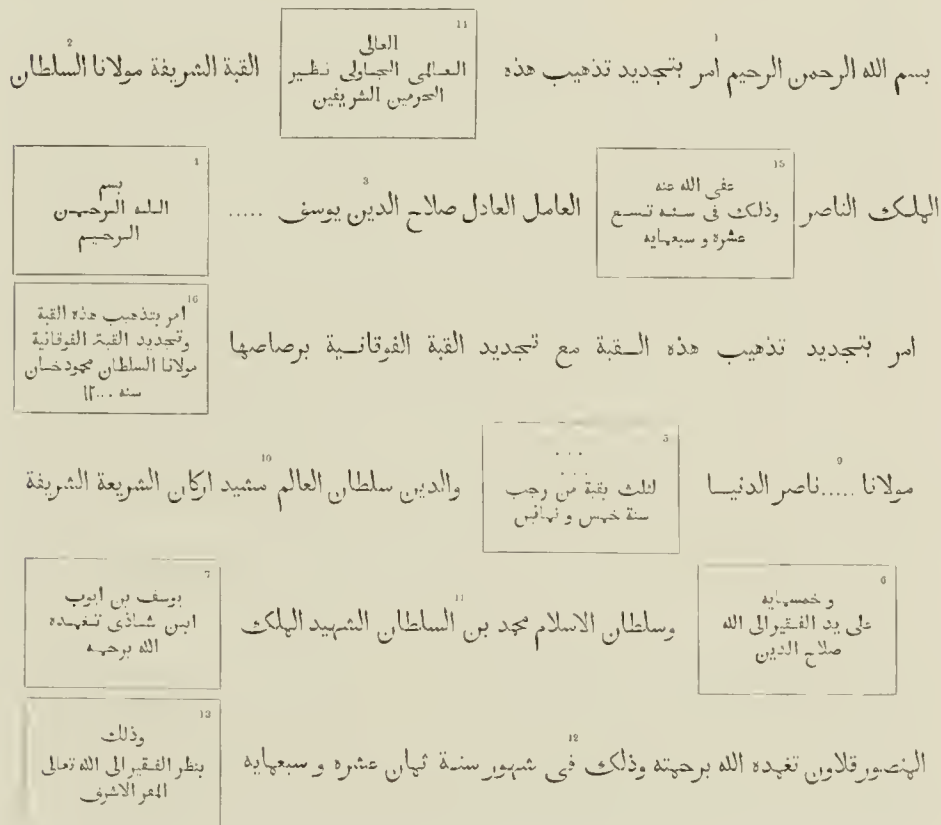 بسم الله الرحمن الرحيم امر بتجديد تذهيب هذه
14
العالى
العالمى الجاولى نظير
الحرمين الشريفين
القبة الشريفة مولانا السلطان
الملك الناصر
15
عفى الله عنه
وذلك فى سنه تسع
عشره و سبعمايه
العامل العادل صلاح الدين يوسف .....
4
بسم
الله الرحمن
الرحيم
امر بتجديد تذهيب هذه القبة مع تجديد القبة الفوقانية برصاصها
16
امر بتذهيب هذه القبة
وتجديد القبة الفوقانية
مولانا السلطان محمود خان
سنه ...١٢
مولانا .....ناصر الدنيا
5
. . .
. . .
لثلث بقية من رجب
سنة خمس و ثمانين
والدين سلطان العالم مشيد اركان الشريعة الشريفة
6
و خمسمايه
على يد الفقير الى الله
صلاح الدين
وسلطان الاسلام محمد بن السلطان الشهيد الملك
7
يوسف بن ايوب
ابن شاذى تغمده
الله برحمه
المنصور قلاون تغمده الله برحمته وذلك فى شهور سنة ثمان عشره و سبعمايه
13
وذلك
بنظر الفقير الى الله تعالى
المقر الاشرف